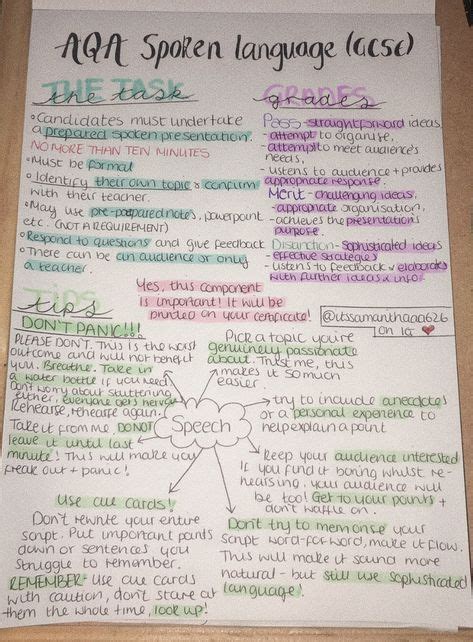 AQA Spoken language (GCSE)
THE TASK
the task
°Candidates must undertake
a prepared spoken presentation.
NO MORE THAN TEN MINUTES
°Must be formal
°Identify their own topic & confirm
with their teacher.
°May use pre-prepared notes, powerpoint
etc. (NOT A REQUIREMENT)
°Respond to questions and give feedback
°There can be an audience or only
a teacher.
GRADES
grades
Pass - straightforward ideas
- attempt to organise,
- attempt to meet audience's
needs,
- listens to audience + provides
appropriate response.
Merit - challenging ideas,
- appropriate organisation,
- achieves the presentation's
purpose.
Distinction - sophisticated ideas
- effective strategies
- listens to feedback & elaborates
with further ideas & info.
Yes, this component
is important! It will be
printed on your certificate!
@itssamanthaaa626
on IG ❤
TIPS
tips
DON'T PANIC!!!
PLEASE DON'T. This is the worst
outcome and will not benefit
you. Breathe. Take in
a water bottle if you need.
Don't worry about stuttering
either, everyone gets nervous
Rehearse, rehearse again.
Take it from me, DO NOT
leave it until last
minute! This will make you
freak out + panic!
Speech
Pick a topic you're
genuinely passionate
about. Trust me, this
makes it so much
easier.
try to include anecdotes
or a personal experience to
help explain a point
Keep your audience interested
If you find it boring whilst re-
hearsing, your audience will
be too! Get to your points +
don't waffle on.
Use cue cards!
Don't rewrite your entire
script. Put important points
down or sentences you
struggle to remember.
REMEMBER: Use cue cards
with caution, don't stare at
them the whole time, look up!
Don't try to memorise your
script word-for-word, make it flow.
This will make it sound more
natural - but still use sophisticated
language!